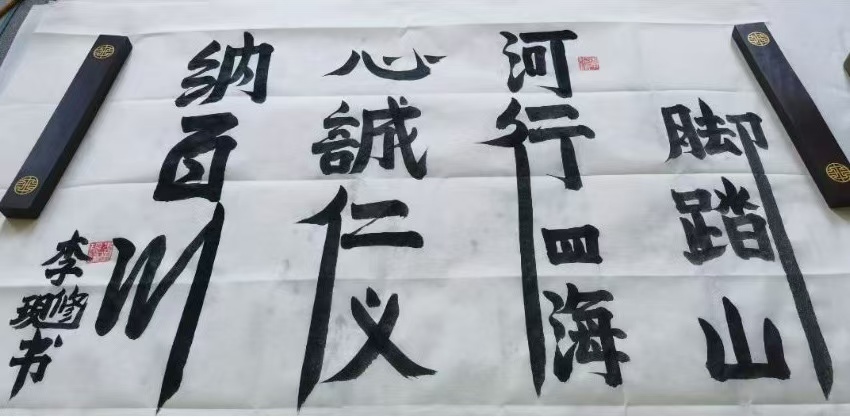 脚踏山
河行四海
心誠仁义
纳百川
李修现书